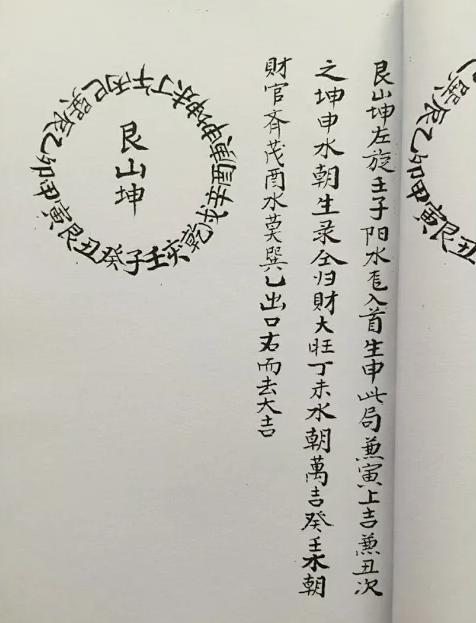 丑艮寅甲卯乙辰巽
艮山坤左旋壬子阳水入首生申此局兼寅上吉兼丑次
之坤申水朝生录仝归財大旺丁未水朝萬吉癸壬水朝
財官斉茂酉水莫巽乙出口右而去大吉
艮山坤
壬子癸丑艮寅甲卯乙辰巽巳丙午丁未坤申庚酉辛戌乾亥